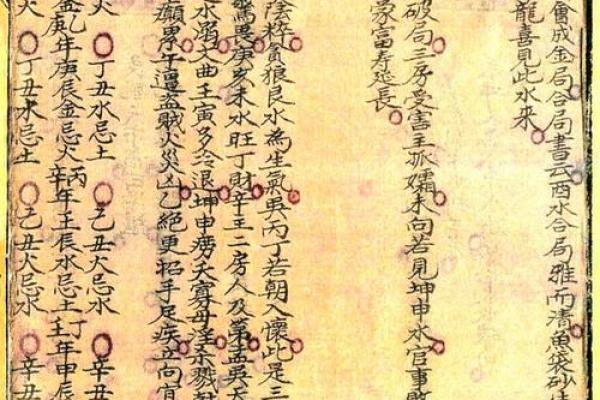 會成金局合局書云酉水合局雅而清魚袋砂
龍喜見此水來
破局三房受害主孤孀未向若見坤申水官事
蒙富寿延長
陰粹貪狼艮水為生氣巽丙丁若朝入懷此是三
驚畏庚亥未水旺丁財辛壬二房人及第孟巽大
水溺文曲壬寅多冷退坤申痨夭寡母淫杀戮
癲累年遭盗賊火災凶乙絕更招手足疾立向宜
火 丁丑水忌土 乙丑火忌水 辛丑
乙年庚辰金忌火 丙辛年壬辰水忌土 丁壬年甲辰
火 丁丑水忌土 乙丑火忌水 辛丑